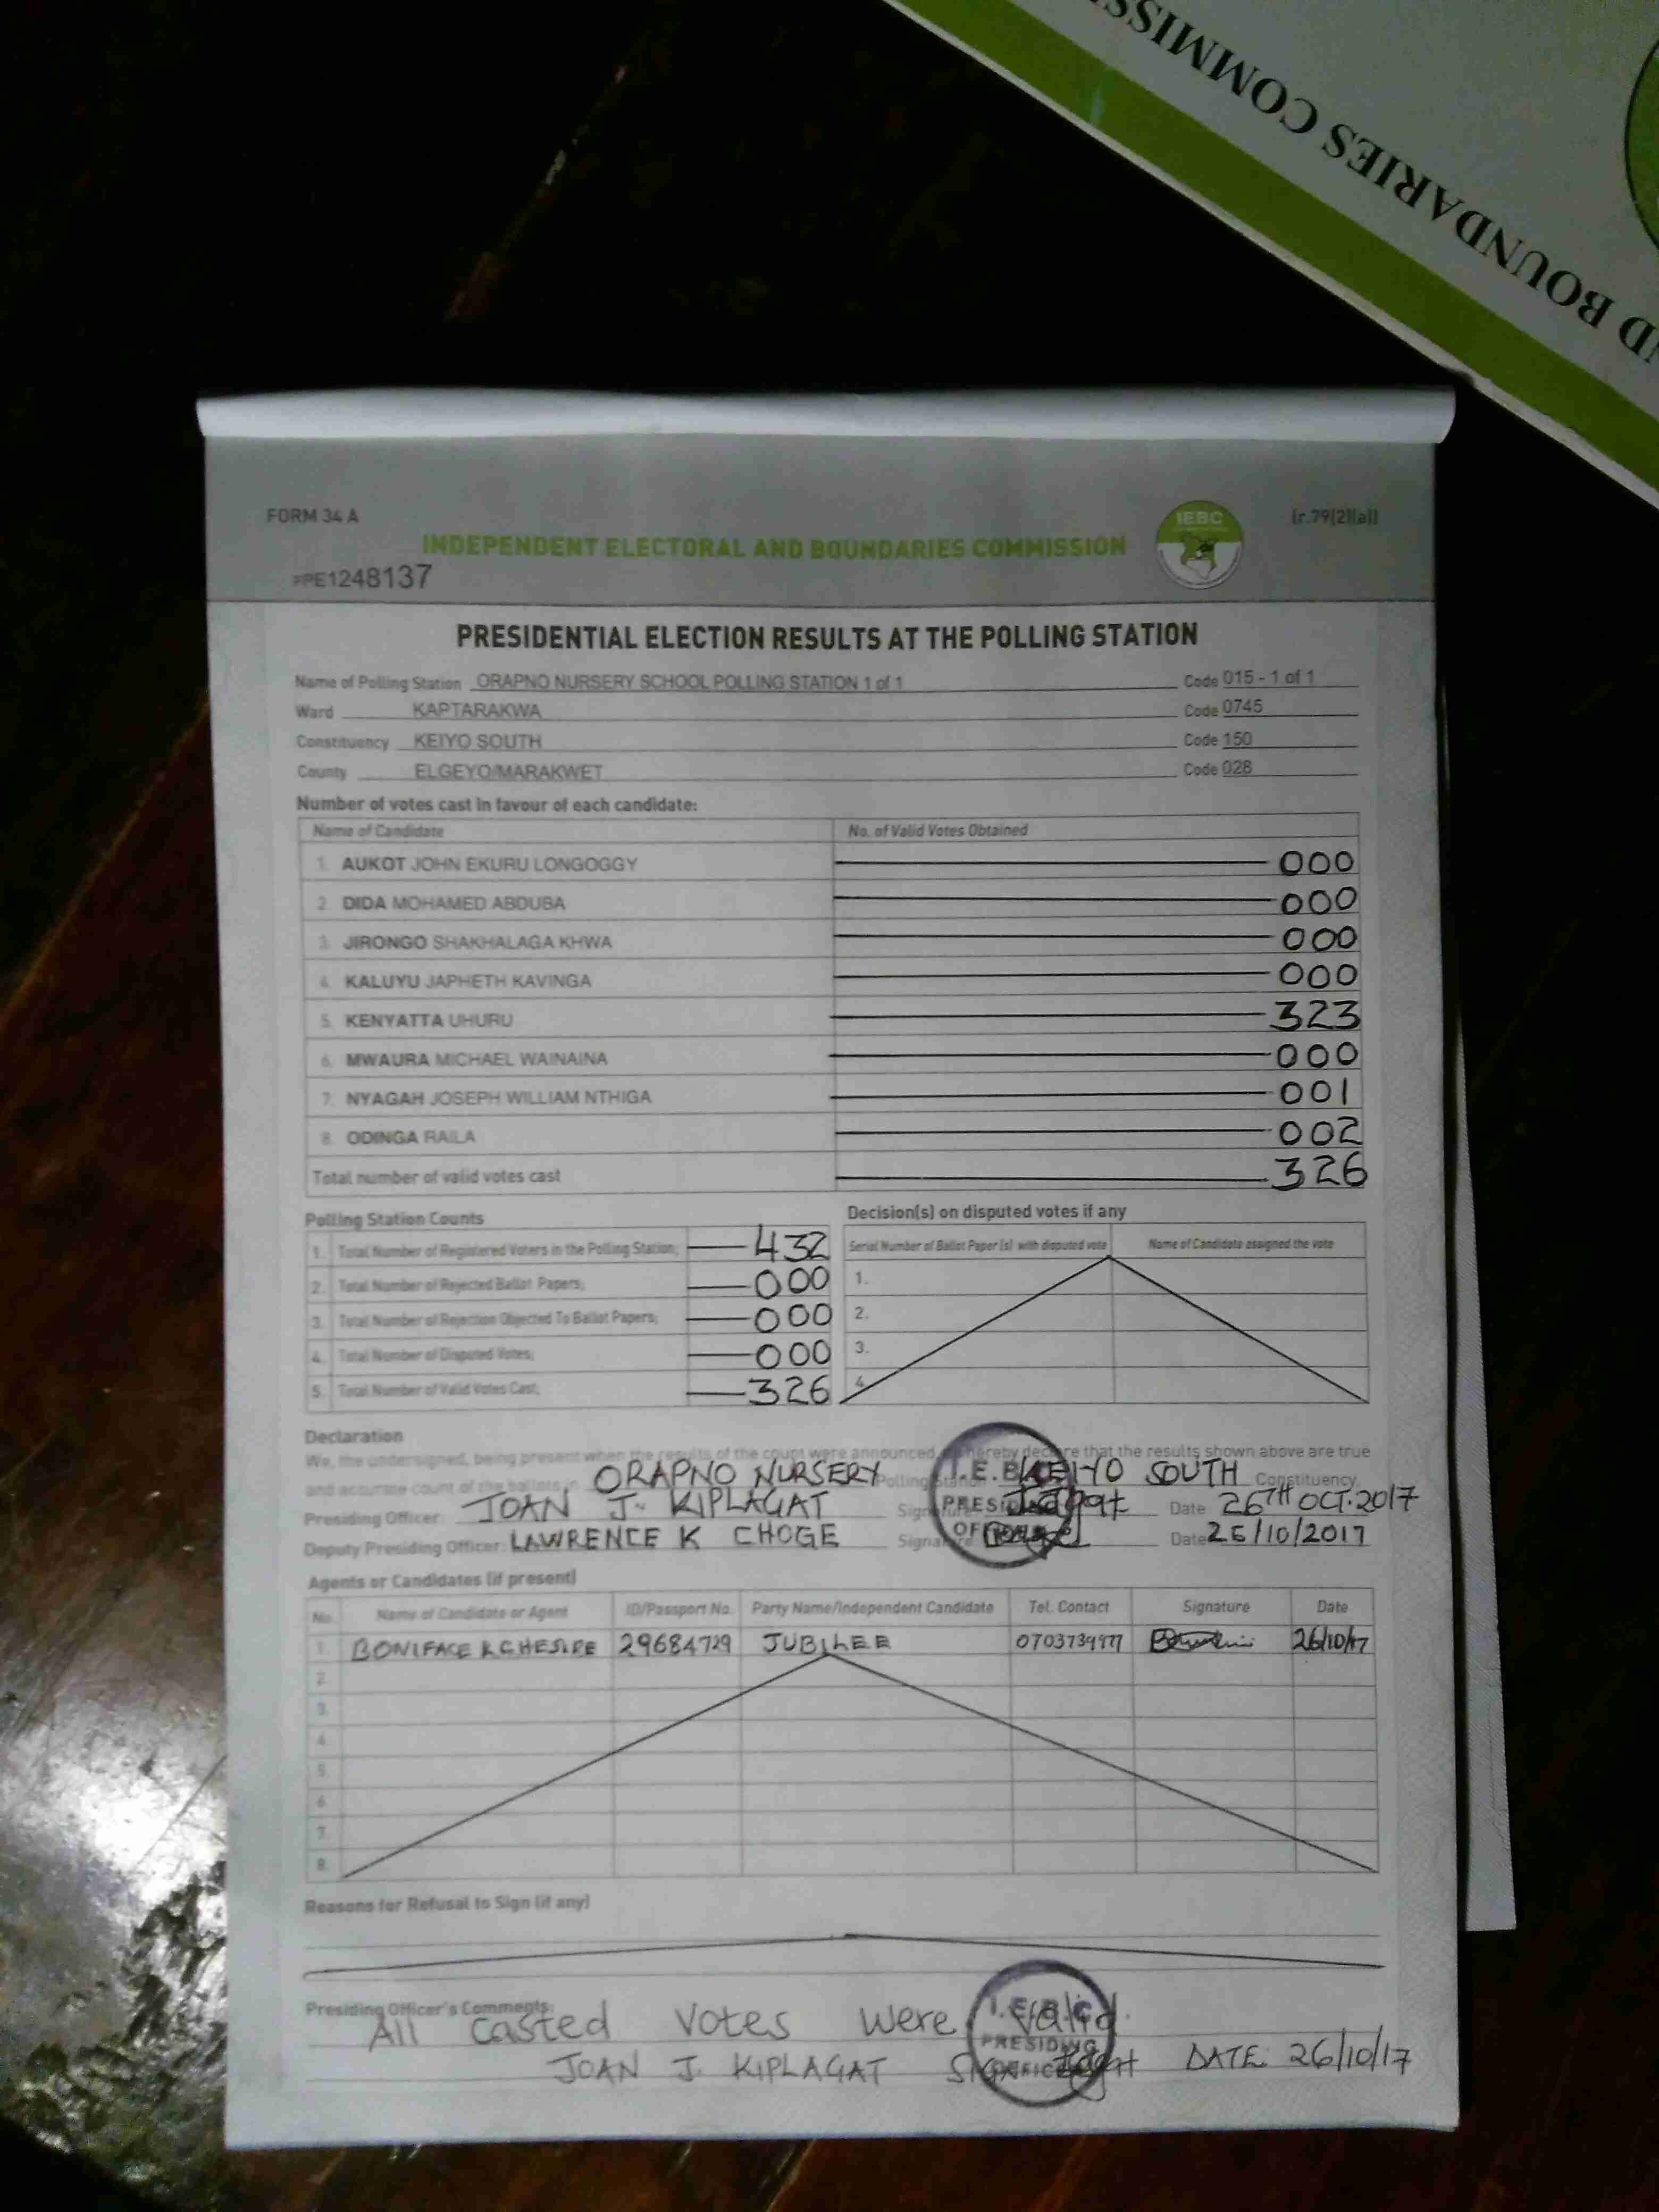 D BOUNDARIES COMMISS
FORM 34 A
IEBC
(r.79(2)(a))
INDEPENDENT ELECTORAL AND BOUNDARIES COMMISSION
PPE1248137
PRESIDENTIAL ELECTION RESULTS AT THE POLLING STATION
Name of Polling Station ORAPNO NURSERY SCHOOL POLLING STATION 1 of 1 Code 015 - 1 of 1
Ward KAPTARAKWA Code 0745
Constituency KEIYO SOUTH Code 150
County ELGEYO/MARAKWET Code 028
Number of votes cast in favour of each candidate:
Name of Candidate No. of Valid Votes Obtained
1. AUKOT JOHN EKURU LONGOGGY 000
2. DIDA MOHAMED ABDUBA 000
3. JIRONGO SHAKHALAGA KHWA 000
4. KALUYU JAPHETH KAVINGA 000
5. KENYATTA UHURU 323
6. MWAURA MICHAEL WAINAINA 000
7. NYAGAH JOSEPH WILLIAM NTHIGA 001
8. ODINGA RAILA 002
Total number of valid votes cast 326
Polling Station Counts
1. Total Number of Registered Voters in the Polling Station; 432
2. Total Number of Rejected Ballot Papers; 000
3. Total Number of Rejection Objected To Ballot Papers; 000
4. Total Number of Disputed Votes; 000
5. Total Number of Valid Votes Cast; 326
Decision(s) on disputed votes if any
Serial Number of Ballot Paper (s) with disputed vote Name of Candidate assigned the vote
1.
2.
3.
4.
Declaration
We, the undersigned, being present when the results of the count were announced, hereby declare that the results shown above are true
and accurate count of the ballots in ORAPNO NURSERY Polling Station KEIYO SOUTH Constituency
Presiding Officer: JOAN J. KIPLAGAT Signature Date 26TH OCT.2017
Deputy Presiding Officer: LAWRENCE K CHOGE Signature: Date 26/10/2017
I.E.B.C
PRESIDING
OFFICER
Agents or Candidates (if present)
No. Name of Candidate or Agent ID/Passport No. Party Name/Independent Candidate Tel. Contact Signature Date
1. BONIFACE K CHESIRE 29684729 JUBILEE 26/10/17
2.
3.
4.
5.
6.
7.
8.
Reasons for Refusal to Sign (if any)
Presiding Officer's Comments:
All casted Votes were valid.
JOAN J. KIPLAGAT SIGN DATE: 26/10/17
I.E.B.C
PRESIDING
OFFICER